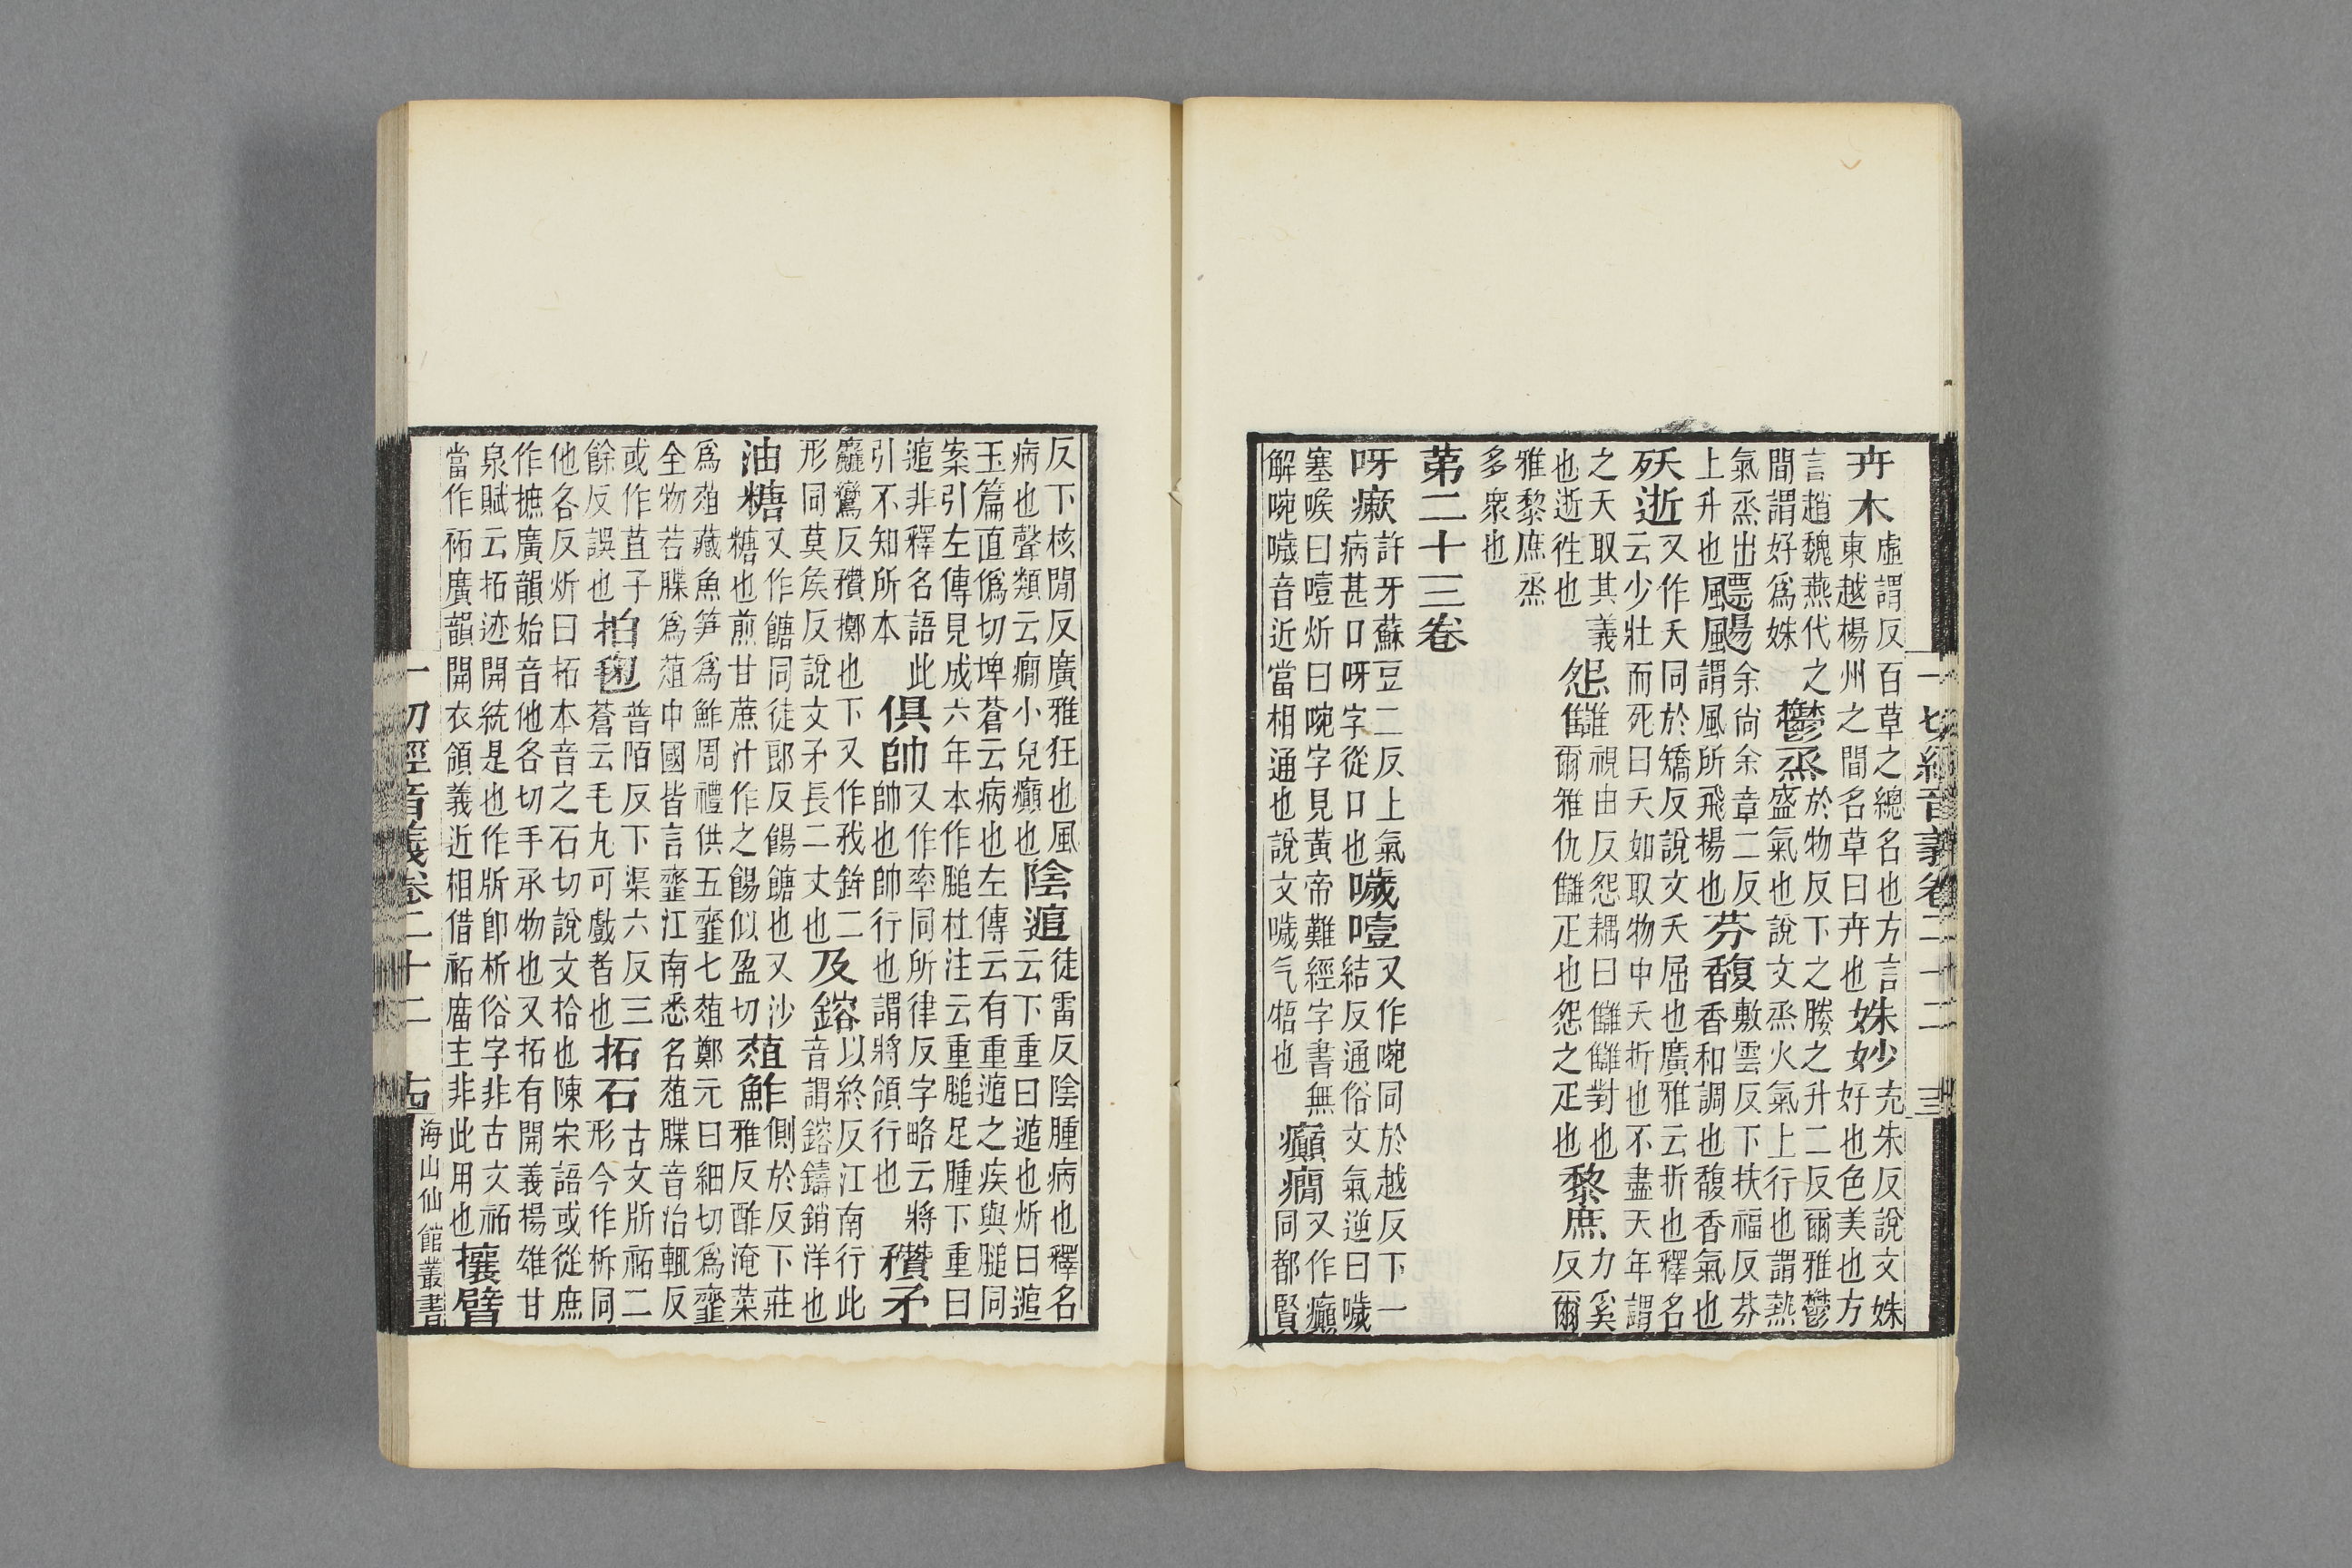 卉木 虛謂反百草之總名也方言
東越楊州之間名草曰卉也 姝妙 充朱反說文姝
好也色美也方
言趙魏燕代之
間謂好爲姝 鬱烝 於物反下之賸之升二反爾雅鬱
盛氣也說文烝火氣上行也謂熱
氣烝出
上升也 飄颺 余尙余章二反
謂風所飛揚也 芬馥 敷雲反下扶福反芬
香和調也馥香氣也
殀逝 又作夭同於矯反說文夭屈也廣雅云折也釋名
云少壯而死曰夭如取物中夭折也不盡天年謂
之夭取其義
也逝徃也 怨讎 視由反怨耦曰讎讎對也
爾雅仇讎疋也怨之疋也 黎庶 力奚
反爾
雅黎庶烝
多衆也
第二十三卷
呀瘶 許牙蘇豆二反上氣
病甚口呀字從口也 噦噎 又作㖧同於越反下一
結反通俗文氣逆曰噦
塞喉曰噎炘曰㖧字見黃帝難經字書無
解㖧噦音近當相通也說文噦气牾也 癲癇 又作癲
同都賢
一切經音義卷二十二 十三
反下核閒反廣雅狂也風
病也聲類云癇小兒癲也 陰㾽 徒雷反陰腫病也釋名
云下重曰㾽也炘曰㾽
玉篇直僞切埤蒼云病也左傳云有重㾽之疾與膇同
案引左傳見成六年本作膇杜注云重膇足腫下重曰
㾽非釋名語此
引不知所本 俱帥 又作率同所律反字略云將
帥也帥行也謂將領行也 穳矛
麤鸞反穳擲也下又作䂊鉾二
形同莫矦反說文矛長二丈也 及鎔 以終反江南行此
音謂鎔鑄銷洋也
油糖 又作餹同徒郞反餳餹也又沙
糖也煎甘蔗汁作之餳似盈切 葅鮓 側於反下莊
雅反酢淹菜
爲葅藏魚笋爲鮓周禮供五韲七葅鄭元曰細切爲韲
全物若䐑爲葅中國皆言韲江南悉名葅䐑音治輒反
或作苴子
餘反誤也 拍毱 普陌反下渠六反三
蒼云毛丸可戲者也 拓石 古文㡿祏二
形今作柝同
他各反炘曰拓本音之石切說文拾也陳宋語或從庶
作摭廣韻始音他各切手承物也又拓有開義楊雄甘
泉賦云拓迹開統是也作㡿卽析俗字非古文祏
當作袥廣韻開衣領義近相借祏廟主非此用也 攘臂
一切經音義卷二十二 十四 海山仙館叢書